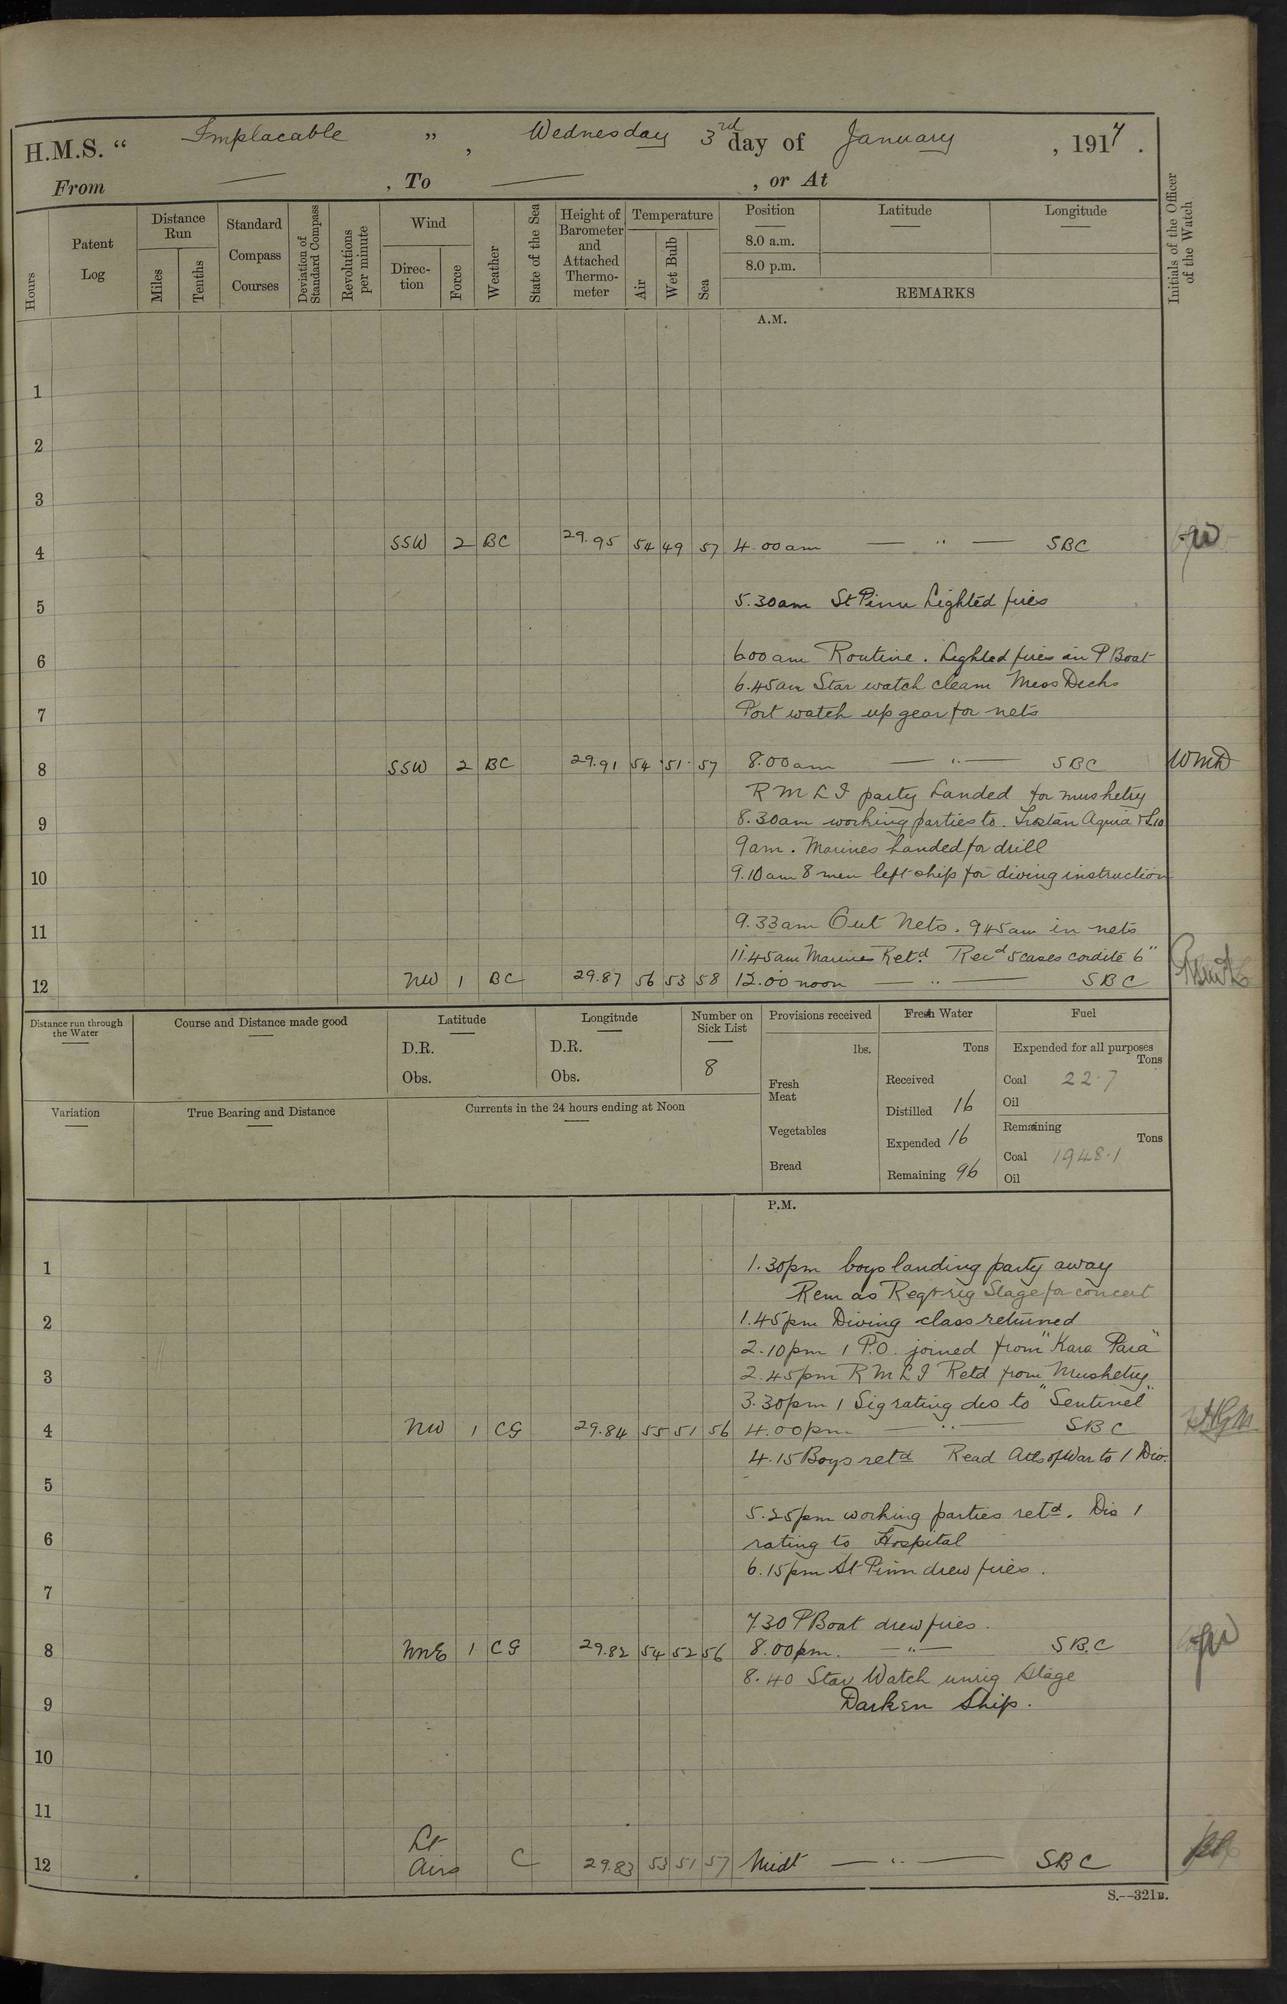 H.M.S. “ Implacable ” , Wednesday 3rd day of January , 1917 .
From — , To — , or At
Hours
Patent Log
Distance Run
Miles
Tenths
Standard Compass Courses
Deviation of Standard Compass
Revolutions per minute
Wind
Direc-tion
Force
Weather
State of the Sea
Height of Barometer and Attached Thermo-meter
Temperature
Air
Wet Bulb
Sea
Position
8.0 a.m.
8.0 p.m.
Latitude
Longitude
REMARKS
Initials of the Officer of the Watch
A.M.
1
2
3
4 SSW 2 BC 29.95 54 49 57 4.00am — " — SBC
5 5.30am St Pinn Lighted fires
6 6.00am Routine. Lighted fires in P Boat
6.45am Star watch clean Mess Decks
7 Port watch up gear for nets
8 SSW 2 BC 29.91 54 51 57 8.00am — " — SBC WMD
R M L I party Landed for musketry
9 8.30am working parties to
9am. Marines Landed for drill
10 9.10am 8 men left ship for diving instruction
11 9.33am Out Nets. 945am in nets
11.45am Marines Retd Recd 5 cases cordite 6"
12 NW 1 BC 29.87 56 53 58 12.00 noon — " — SBC
Distance run through the Water
Course and Distance made good
Latitude
D.R.
Obs.
Longitude
D.R.
Obs.
Number on Sick List
8
Provisions received
lbs.
Fresh Meat
Vegetables
Bread
Fresh Water
Tons
Received
Distilled 16
Expended 16
Remaining 96
Fuel
Expended for all purposes
Tons
Coal 22.7
Oil
Remaining
Tons
Coal 1948.1
Oil
Variation
True Bearing and Distance
Currents in the 24 hours ending at Noon
P.M.
1 1.30pm boys landing party away
Rem as Reqd rig Stage for concert
2 1.45pm Diving class returned
2.10pm 1 P.O. joined from "Kara Para"
3 2.45pm R M L I Retd from Musketry
3.30pm 1 Sig rating dis to "Sentinel"
4 NW 1 CG 29.84 55 51 56 4.00pm — " — SBC
4.15 Boys retd Read Arts of War to 1 Div.
5
5.25pm working parties retd. Dis 1
6 rating to Hospital
6.15pm St Pinn drew fires.
7
7.30 P Boat drew fires.
8 NNE 1 CG 29.82 54 52 56 8.00pm. — " — SBC
8.40 Star Watch unrig Stage
9 Darken Ship.
10
11
12 Lt Airs C 29.83 53 51 57 Midt — " — SBC
S.--321B.